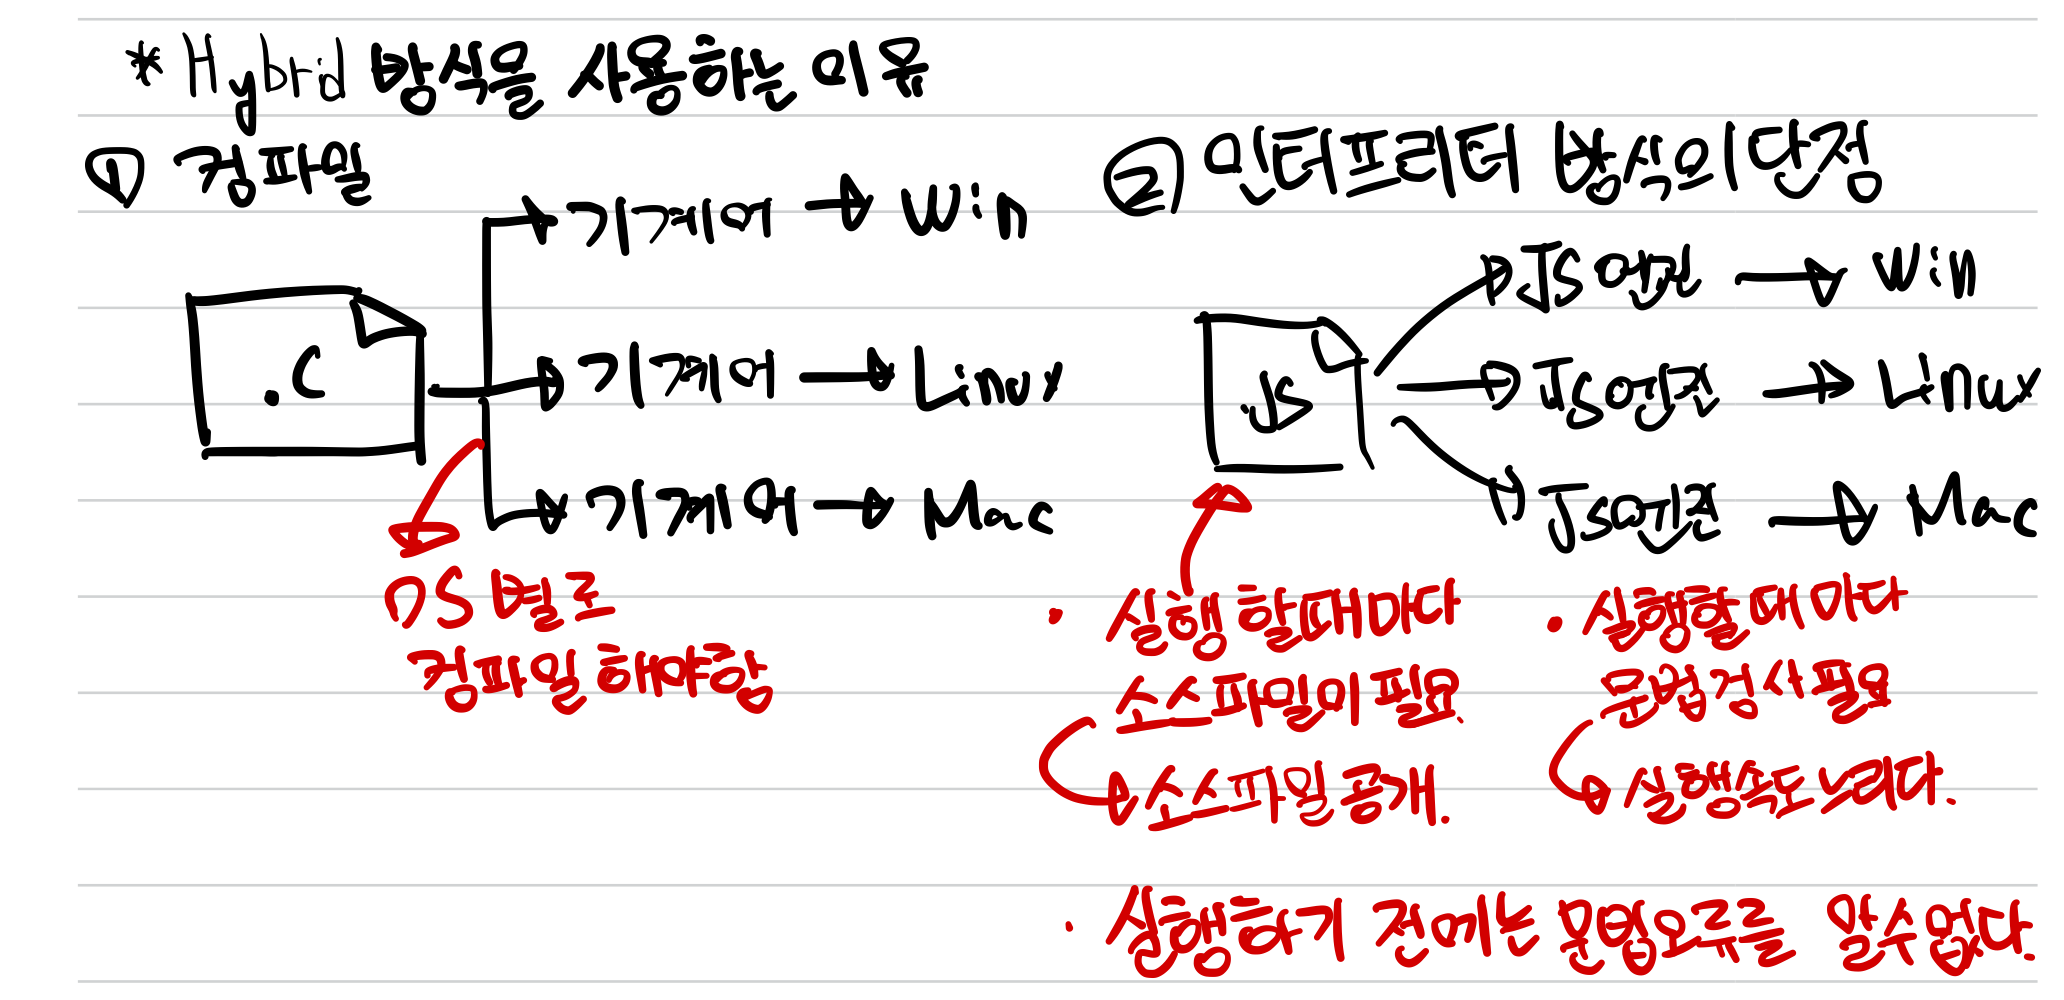 * Hybrid 방식을 사용하는 이유
① 컴파일
기계어 → Win
.C
기계어 → Linux
기계어 → Mac
OS 별로
컴파일 해야함
② 인터프리터 방식의 단점
JS엔진 → Win
.JS
JS엔진 → Linux
JS엔진 → Mac
· 실행 할때마다
소스파일이 필요.
소스파일 공개.
· 실행할때 마다
문법검사 필요
실행속도 느리다.
· 실행하기 전에는 문법오류를 알수 없다.